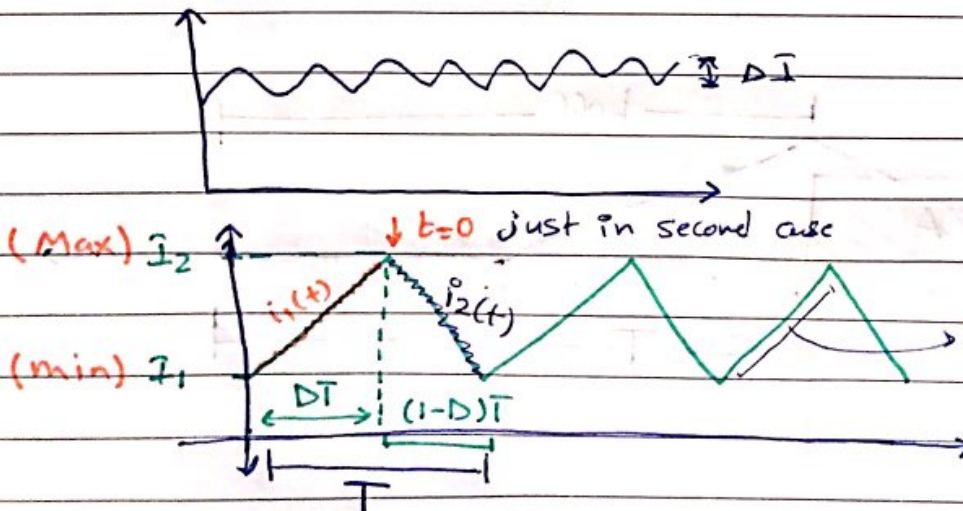 ΔI
(Max) I2 t=0 just in second case
i1(t) i2(t)
(min) I1
DT (1-D)T
T